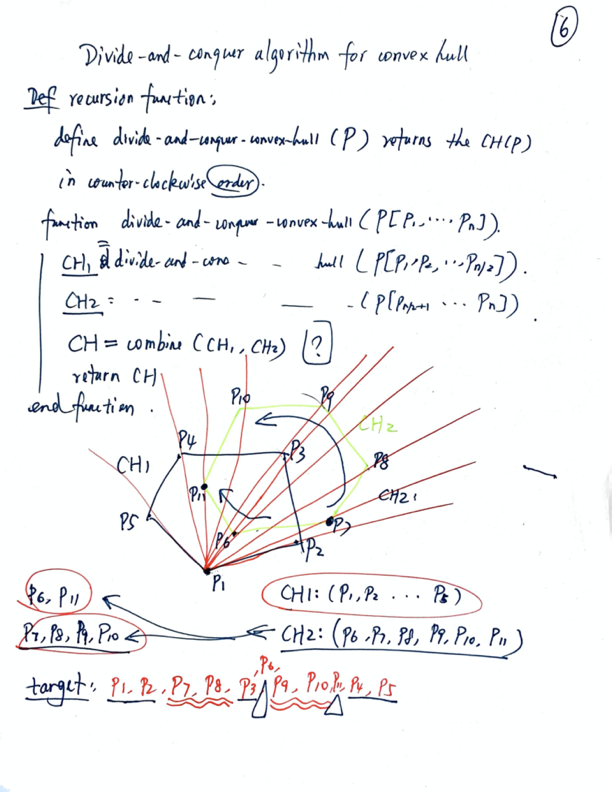 6
Divide-and-conquer algorithm for convex hull
Def recursion function:
define divide-and-conquer-convex-hull (P) returns the CH(P)
in counter-clockwise order.
function divide-and-conquer-convex-hull (P[P1, ... Pn]).
CH1 = divide-and-conq - - hull (P[P1, P2, ... Pn/2]).
CH2 = - - — — - (P[Pn/2+1 ... Pn]).
CH = combine (CH1, CH2) ?
return CH
end function.
P10 P9
CH2
P4 P3
CH1 P8
P11 CH2
P5 P7
P6 P2
P1
P6, P11 CH1: (P1, P2 ... P5)
P7, P8, P9, P10 CH2: (P6, P7, P8, P9, P10, P11)
P6,
target: P1, P2, P7, P8, P3, P9, P10, P11, P4, P5